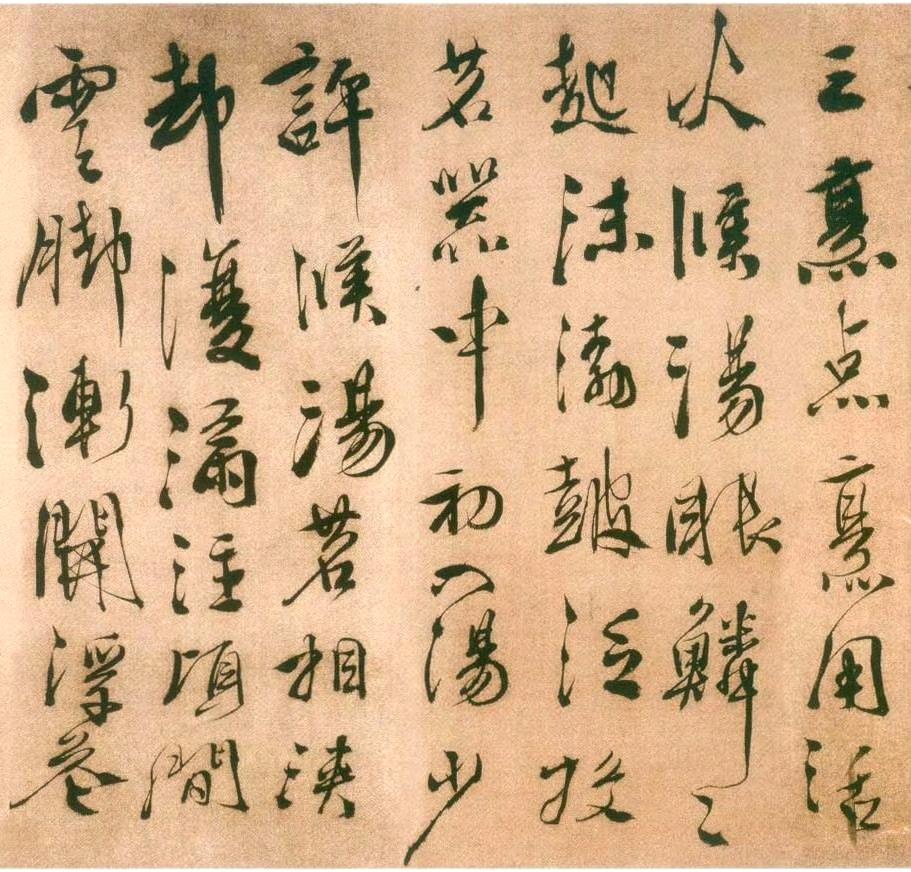 三烹点烹用活
火候湯眼鱗〻
起沫渤鼓泛投
茗器中初入湯少
許候湯茗相浹
却復滿注頃間
雲脚漸開浮花